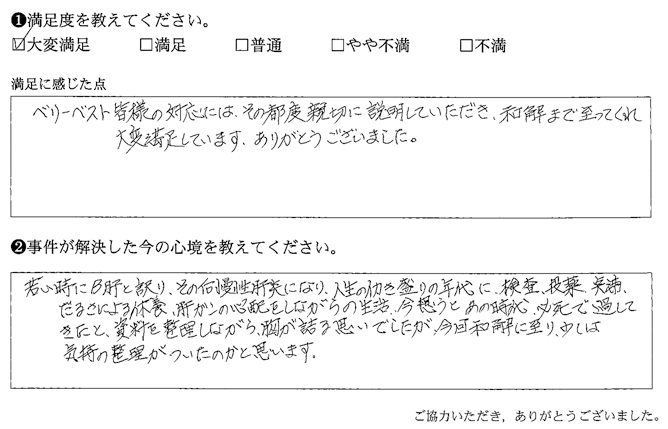 ❶満足度を教えてください。
☑大変満足 □満足 □普通 □やや不満 □不満
満足に感じた点
ベリーベスト皆様の対応には、その都度親切に説明していただき、和解まで至ってくれ
大変満足しています、ありがとうございました。
❷事件が解決した今の心境を教えてください。
若い時にB肝と訳り、その后慢性肝炎になり、人生の働き盛りの年代に、検査、投薬、
だるさによる休養、肝がんの心配をしながらの生活、今想うとあの時代、必死で過して
きたと、資料を整理しながら、胸が詰る思いでしたが、今回和解に至り、少しは
気持の整理がついたのかと思います。
ご協力いただき，ありがとうございました。